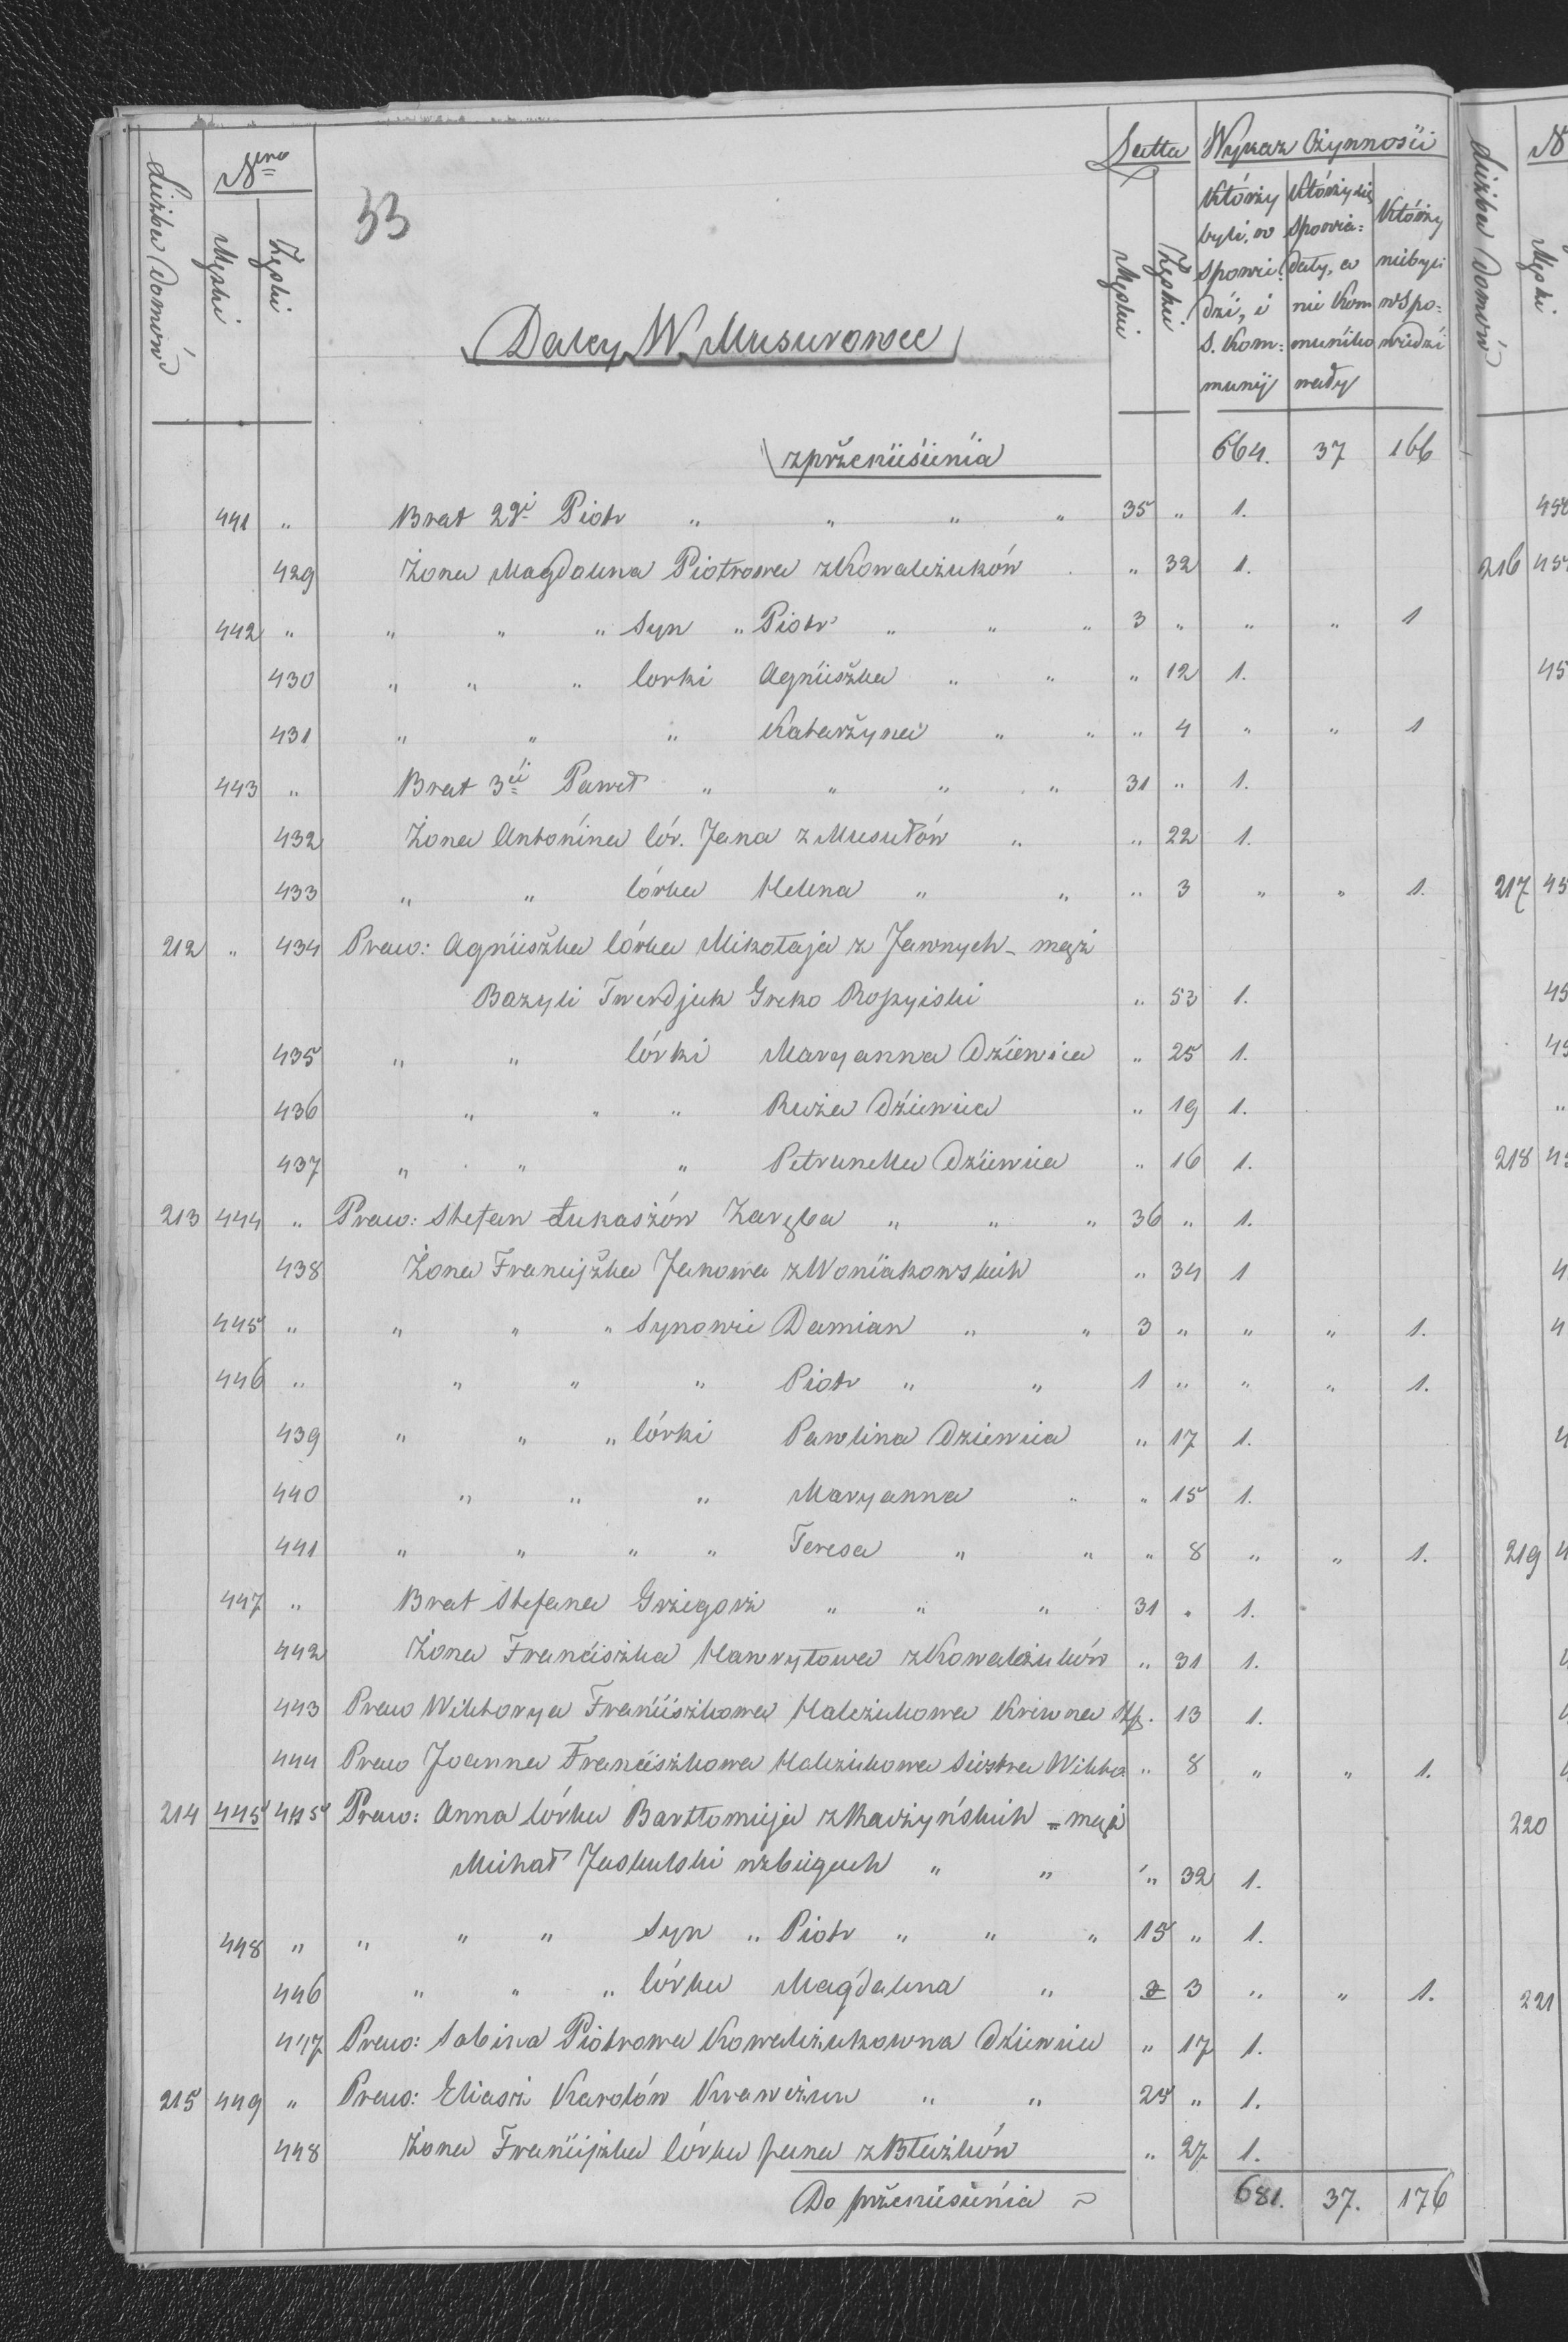 Nero
Latta Wykaz Czynności
Liczba Domów
Męski
Żęski
Męski
Żęski
Którzy byli, w spowie: dzi, i S. Kom: munij
Którzy się spowia: dały, a nie Kom muniko wały
Którzy niebyli w Spo: wiedzi
33
Daley W Musurowce
zprzeniesienia 664. 37 166
441 " Brat 2gi Piotr " " " " 35 " 1.
429 Żona Magdalena Piotrowa z Kowalczuków " 32 1.
442 " " " " Syn " Piotr " " " 3 " " " 1
430 " " " Corki Agnieszka " " " 12 1.
431 " " " Katarzyna " " " 4 " " 1
443 " Brat 3ci Paweł " " " " 31 " 1.
432 Żona Antonina Cór. Jana z Musułów " " 22 1.
433 " " Córka Helena " " " 3 " " 1.
212 " 434 Praco: Agnieszka Córka Mikołaja z Jawnych - mąż
Bazyli Twerdjuk Greko Rossyiski " 53 1.
435 " " Córki Maryanna Dziewica " 25 1.
436 " " " Ruża Dziewica " 19 1.
437 " " " Petrunella Dziewica " 16 1.
213 444 " Praco: Stefan Łukaszów Zaręba " " " 36 " 1.
438 Żona Franciszka Janowa z Woniakowskich " 34 1
445 " " " " Synowie Damian " " 3 " " " 1.
446 " " " " Piotr " " 1 " " " 1.
439 " " " Córki Pawlina Dziewica " 17 1.
440 " " " Maryanna " " 15 1.
441 " " " " Teresa " " " 8 " " 1.
447 " Brat Stefana Grzegorz " " " 31 " 1.
442 Żona Franciszka Hawryłowa z Kowalczuków " 31 1.
443 Praco Wiktorya Franciszkowa Halczukowa Kriwna 13 1.
444 Praco Joanna Franciszkowa Halczukowa Siostra Wikto " 8 " " 1.
214 445 445 Praco: Anna Córka Bartłomieja z Kaczyńskich - mąż
Michał Jaskulski wzbiegach " " " 32 1.
448 " " " " Syn " Piotr " " " 15 " 1.
446 " " " Córka Magdalena " 3 3 " " 1.
447 Praco: Sabina Piotrowa Kowalczukowna Dziewica " 17 1.
215 449 " Praco: Eliasz Karolów Krawczuk " " 25 " 1.
448 Żona Franciszka Córka Jana z Błaszków " 27 1.
Do przeniesienia 681. 37. 176
N
Liczba Domów
Męski
216
217
218
219
220
221